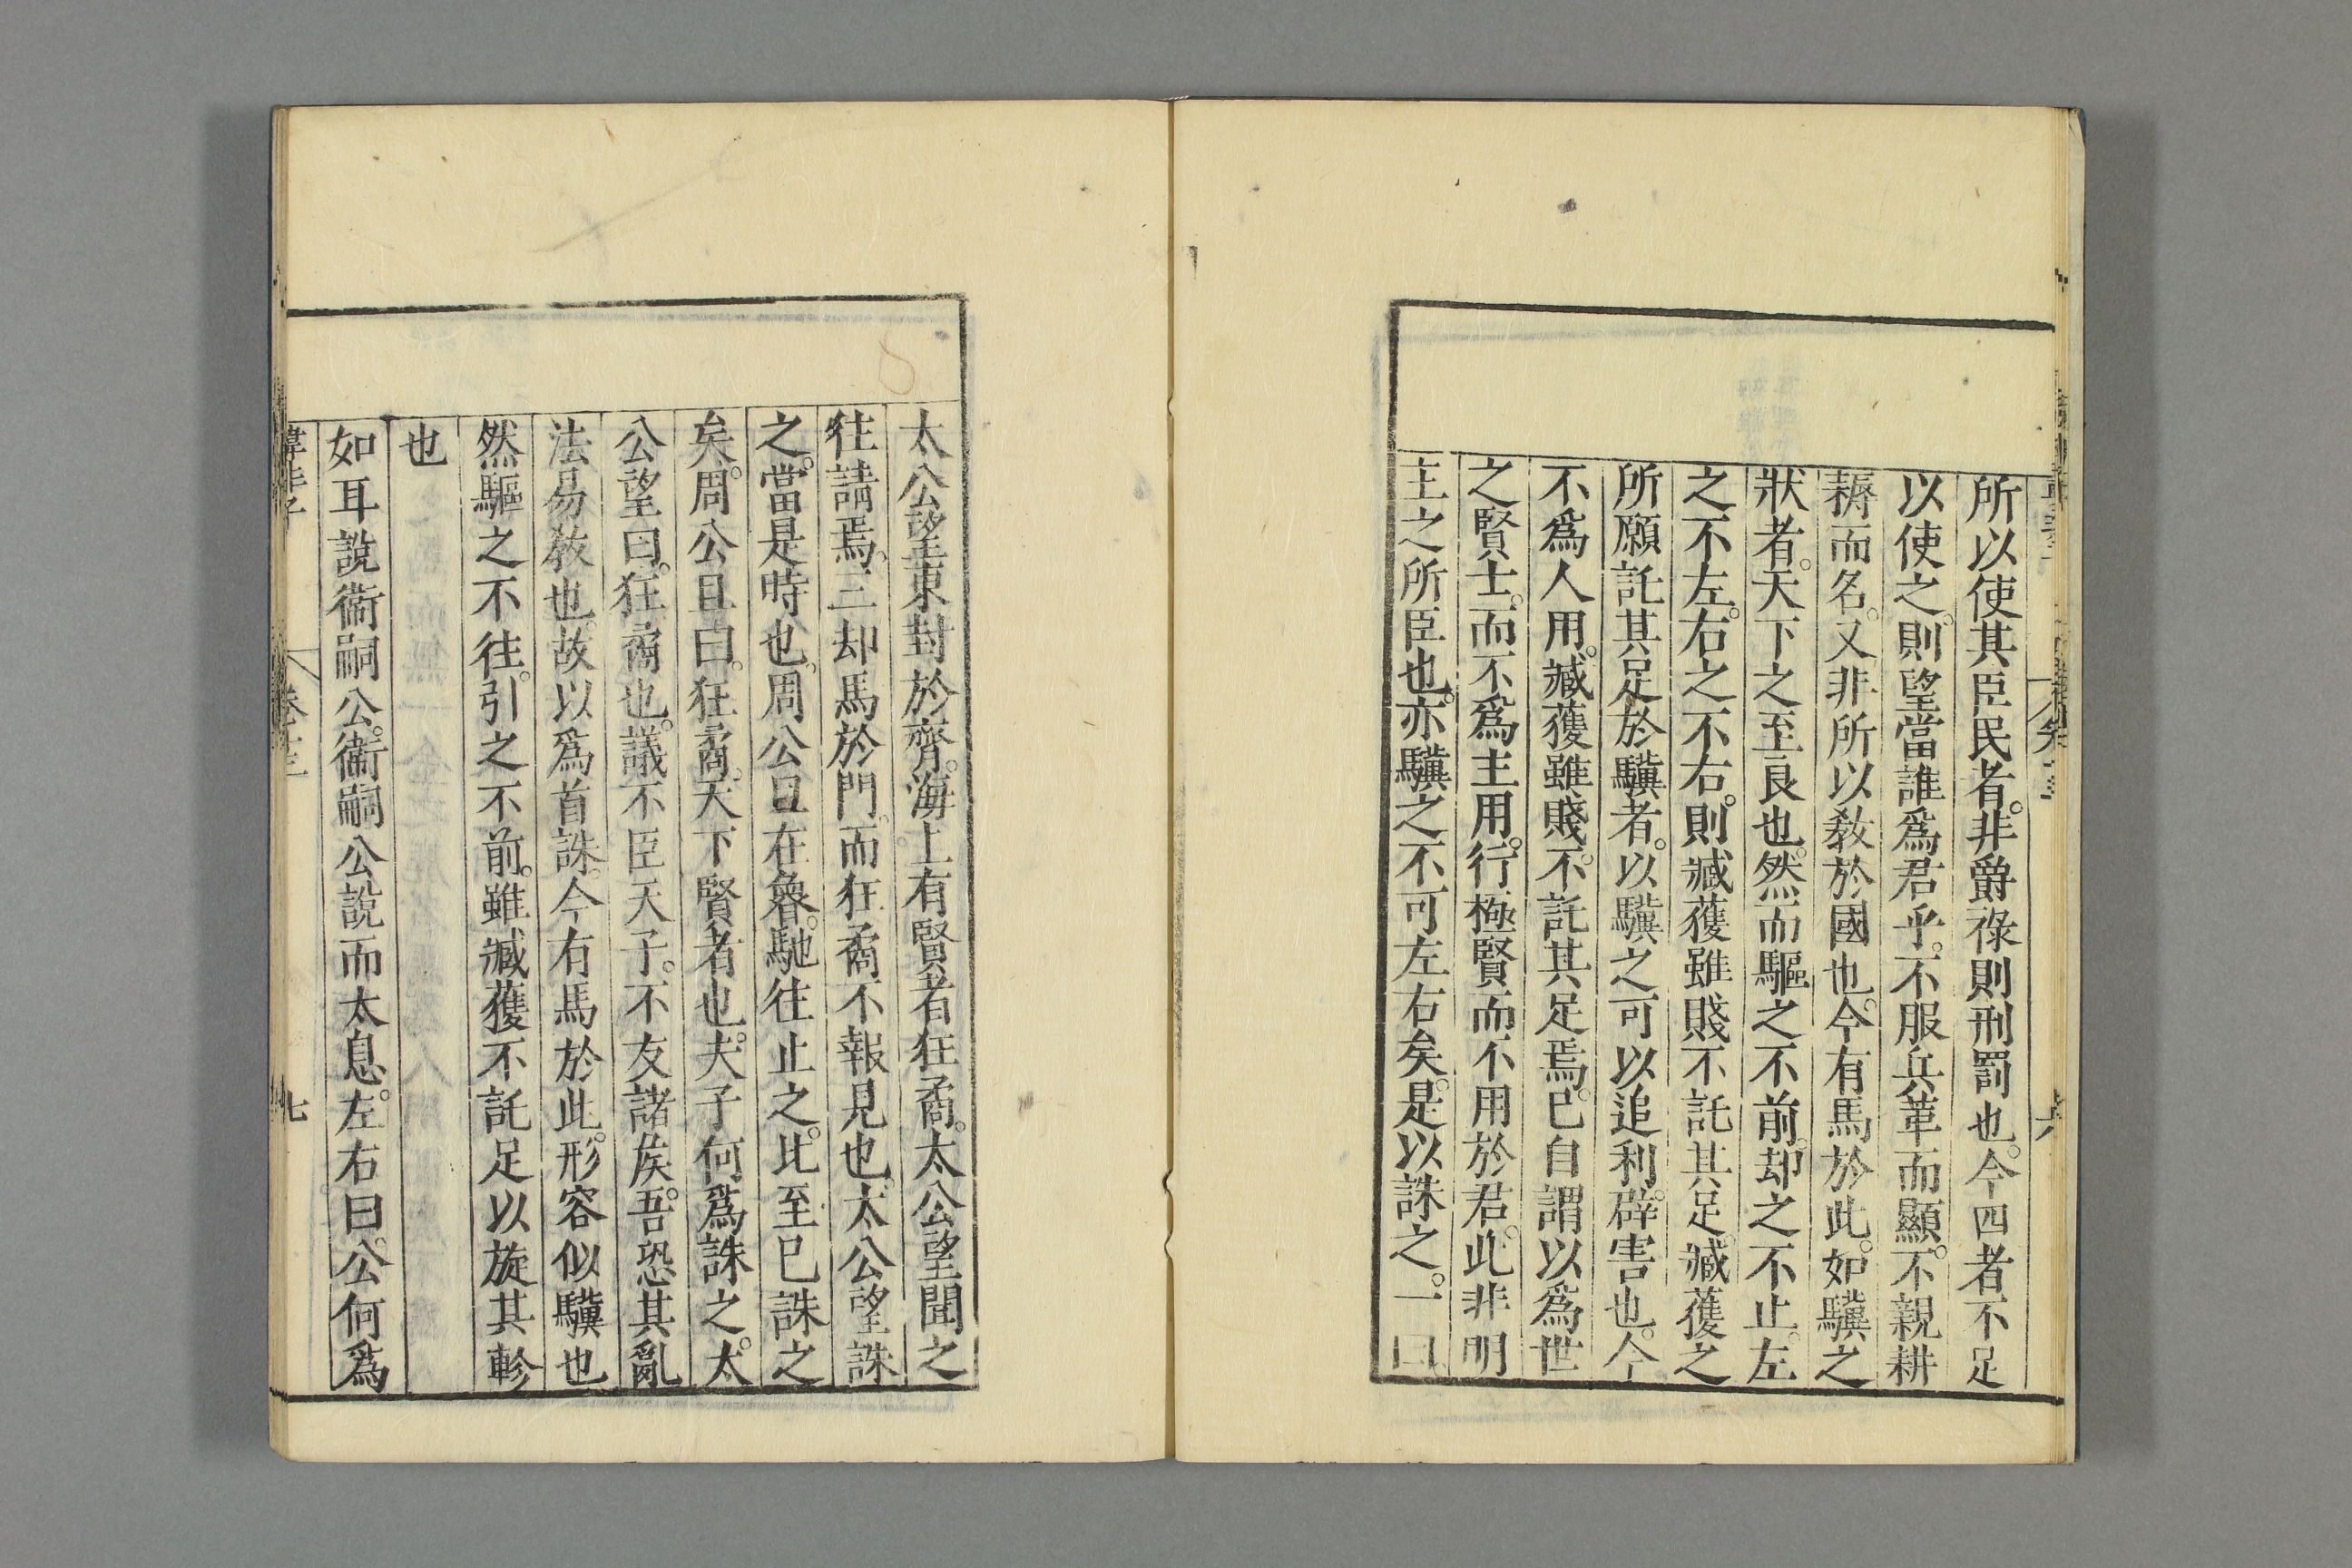 所以使其臣民者。非爵祿則刑罰也。今四者不足
以使之。則望當誰爲君乎。不服兵革而顯。不親耕
耨而名。又非所以敎於國也。今有馬於此。如驥之
狀者。天下之至良也。然而驅之不前。却之不止。左
之不左。右之不右。則臧獲雖賤不託其足。臧獲之
所願託其足於驥者。以驥之可以追利辟害也。今
不爲人用。臧獲雖賤。不託其足焉。已自謂以爲世
之賢士。而不爲主用。行極賢而不用於君。此非明
主之所臣也。亦驥之不可左右矣。是以誅之。一曰
太公望東封於齊。海上有賢者狂矞。太公望聞之
往請焉。三却馬於門。而狂矞不報見也。太公望誅
之。當是時也。周公旦在魯。馳往止之。比至已誅之
矣。周公旦曰。狂矞。天下賢者也。夫子何爲誅之。太
公望曰。狂矞也。議不臣天子。不友諸矦。吾恐其亂
法易敎也。故以爲首誅。今有馬於此。形容似驥也
然驅之不往。引之不前。雖臧獲不託足以旋其軫
也
如耳說衞嗣公。衞嗣公說而太息。左右曰。公何爲
韓非子 卷十三 七